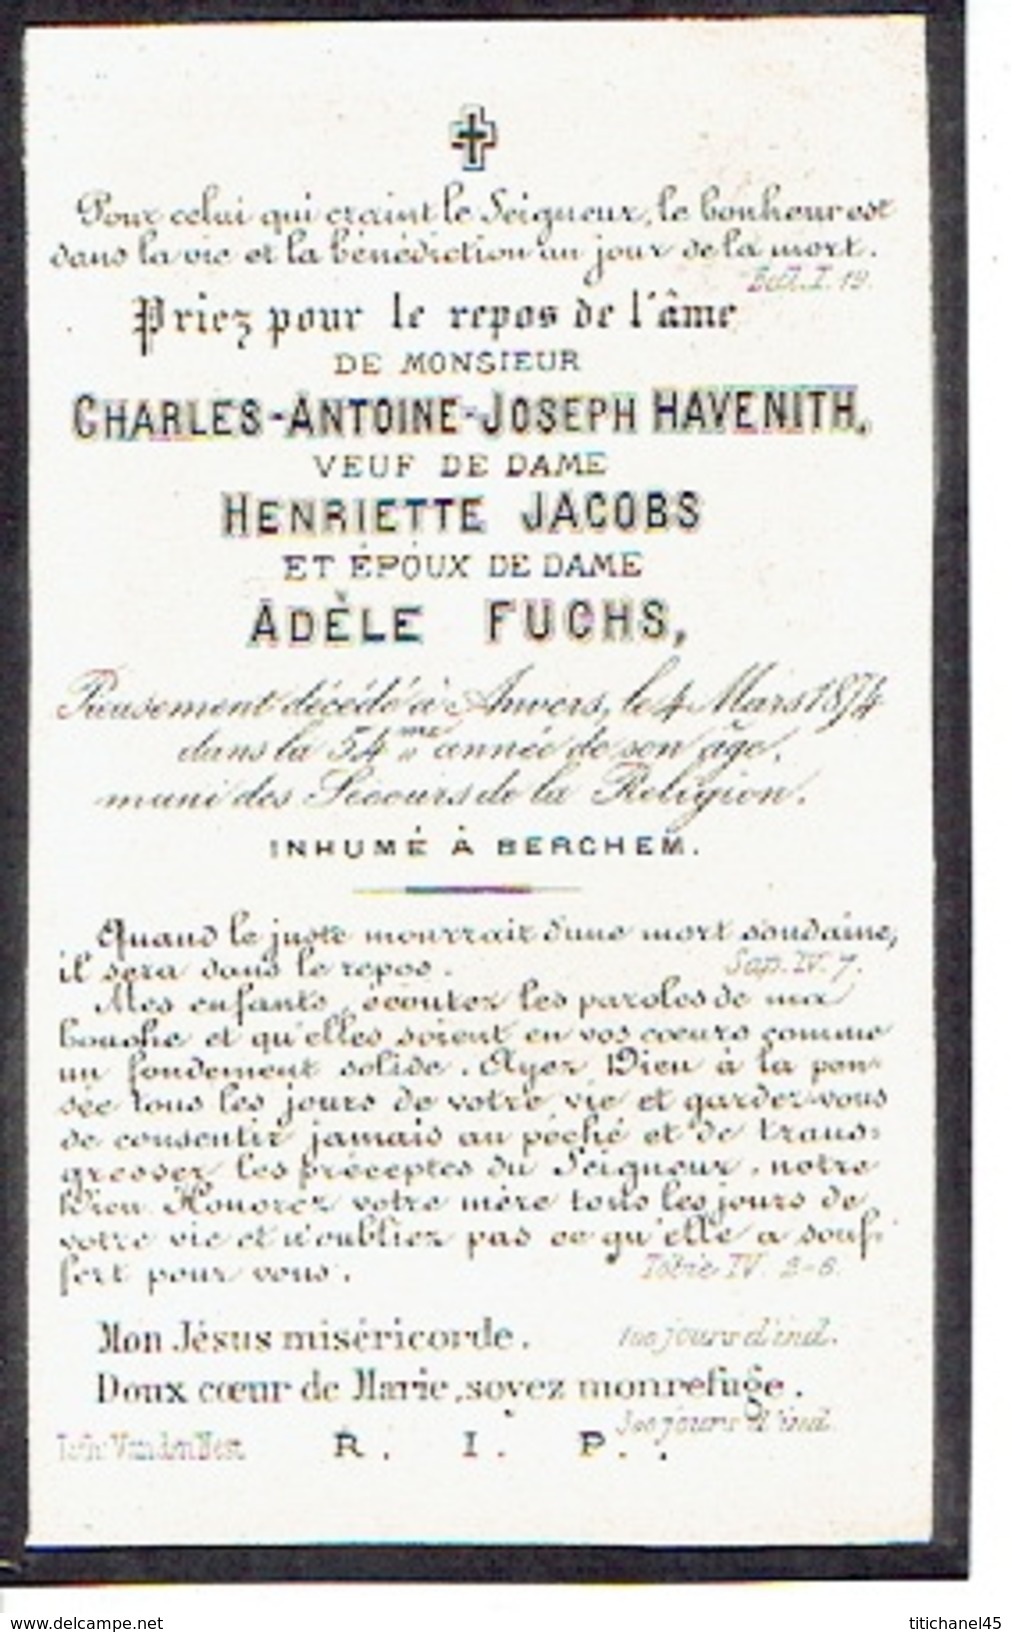 Pour celui qui craint le Seigneur, le bonheur est
dans la vie et la bénédiction au jour de la mort.
Eccl. I. 19.
Priez pour le repos de l'âme
DE MONSIEUR
CHARLES-ANTOINE-JOSEPH HAVENITH,
VEUF DE DAME
HENRIETTE JACOBS
ET ÉPOUX DE DAME
ADÈLE FUCHS,
Pieusement décédé à Anvers, le 4 Mars 1874
dans la 54me année de son âge,
muni des Secours de la Religion.
INHUMÉ À BERCHEM.
Quand le juste mourrait d'une mort soudaine,
il sera dans le repos.
Sap. IV. 7.
Mes enfants, écoutez les paroles de ma
bouche et qu'elles soient en vos cœurs comme
un fondement solide. Ayez Dieu à la pen-
sée tous les jours de votre vie et gardez-vous
de consentir jamais au péché et de trans-
gresser les préceptes du Seigneur, notre
Dieu. Honorez votre mère tous les jours de
votre vie et n'oubliez pas ce qu'elle a souf-
fert pour vous.
Tobie IV. 2-6.
Mon Jésus miséricorde. 100 jours d'ind.
Doux cœur de Marie, soyez mon refuge.
300 jours d'ind.
Van den Nest R. I. P.
www.delcampe.net
titichanel45